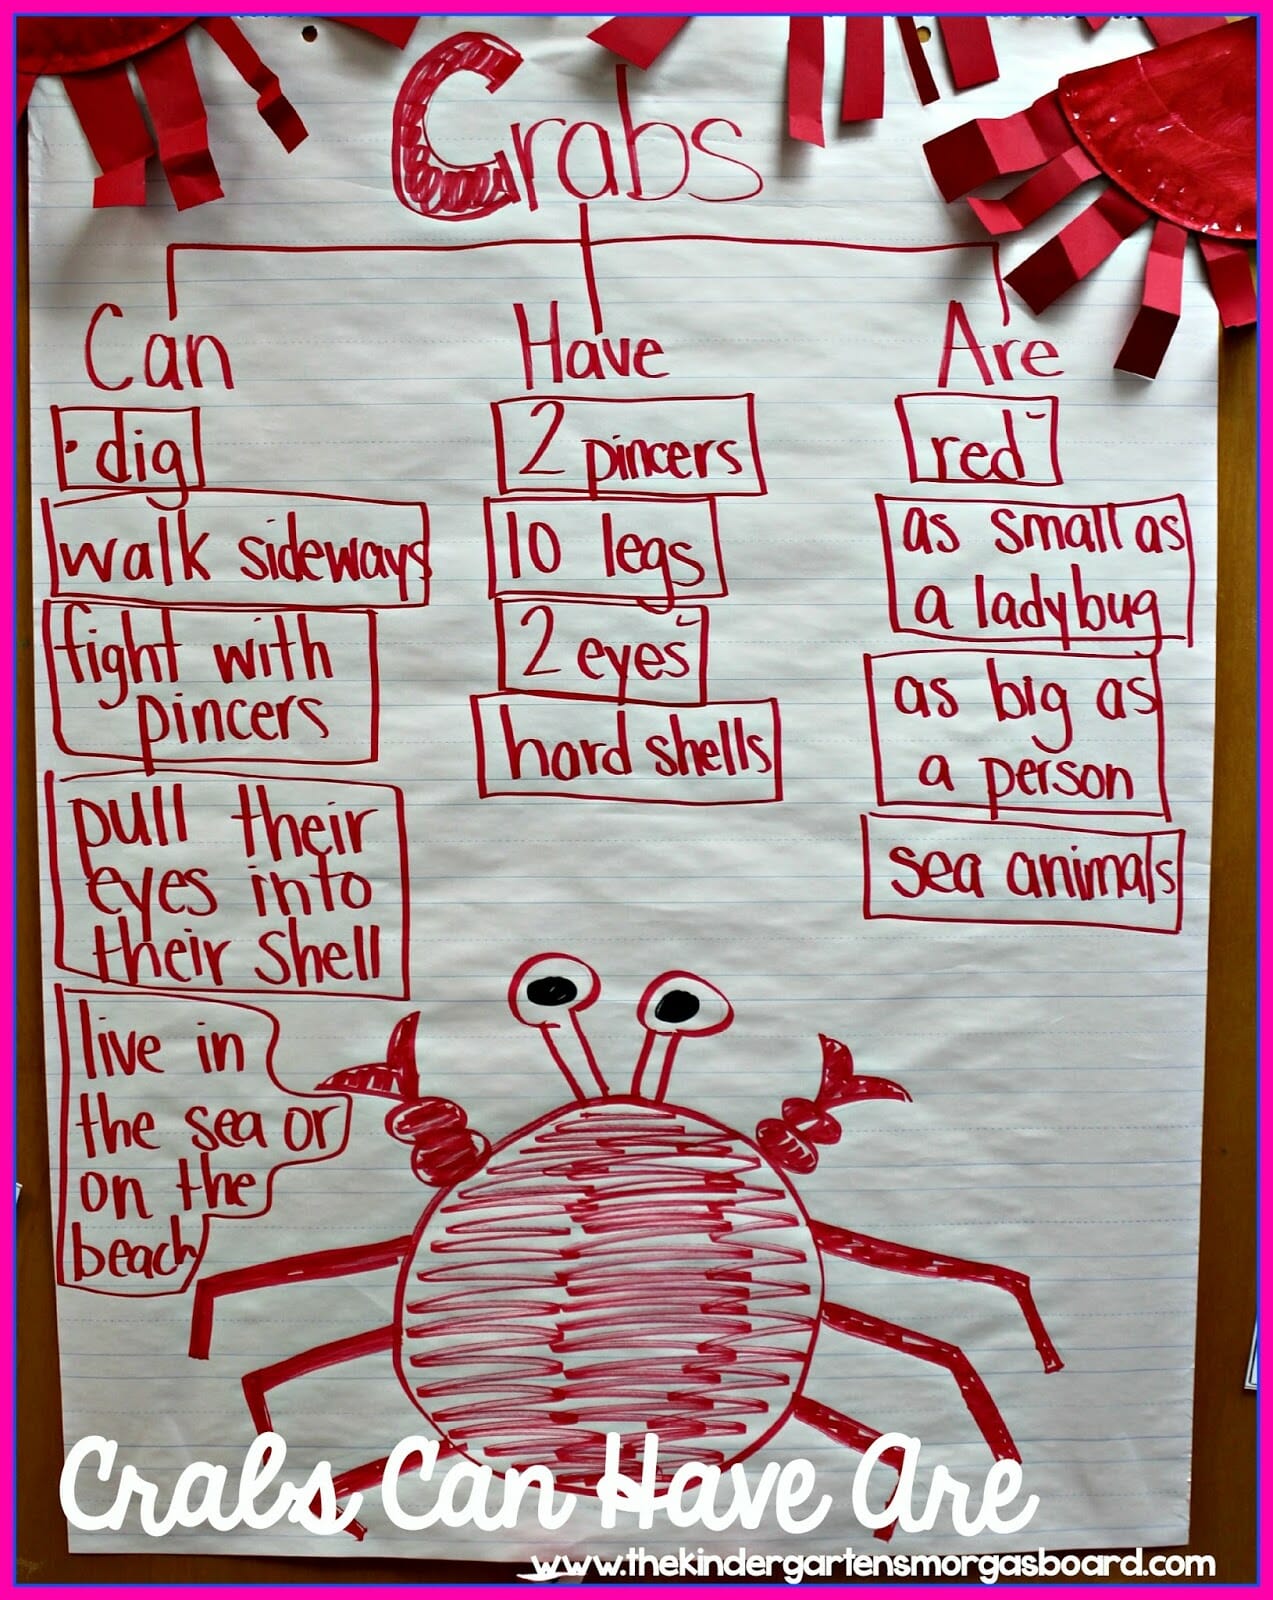 Crabs
Can
dig
walk sideways
fight with
pincers
pull their
eyes into
their shell
live in
the sea or
on the
beach
Have
2 pincers
10 legs
2 eyes
hard shells
Are
red
as small as
a ladybug
as big as
a person
sea animals
Crabs Can Have Are
www.thekindergartensmorgasboard.com